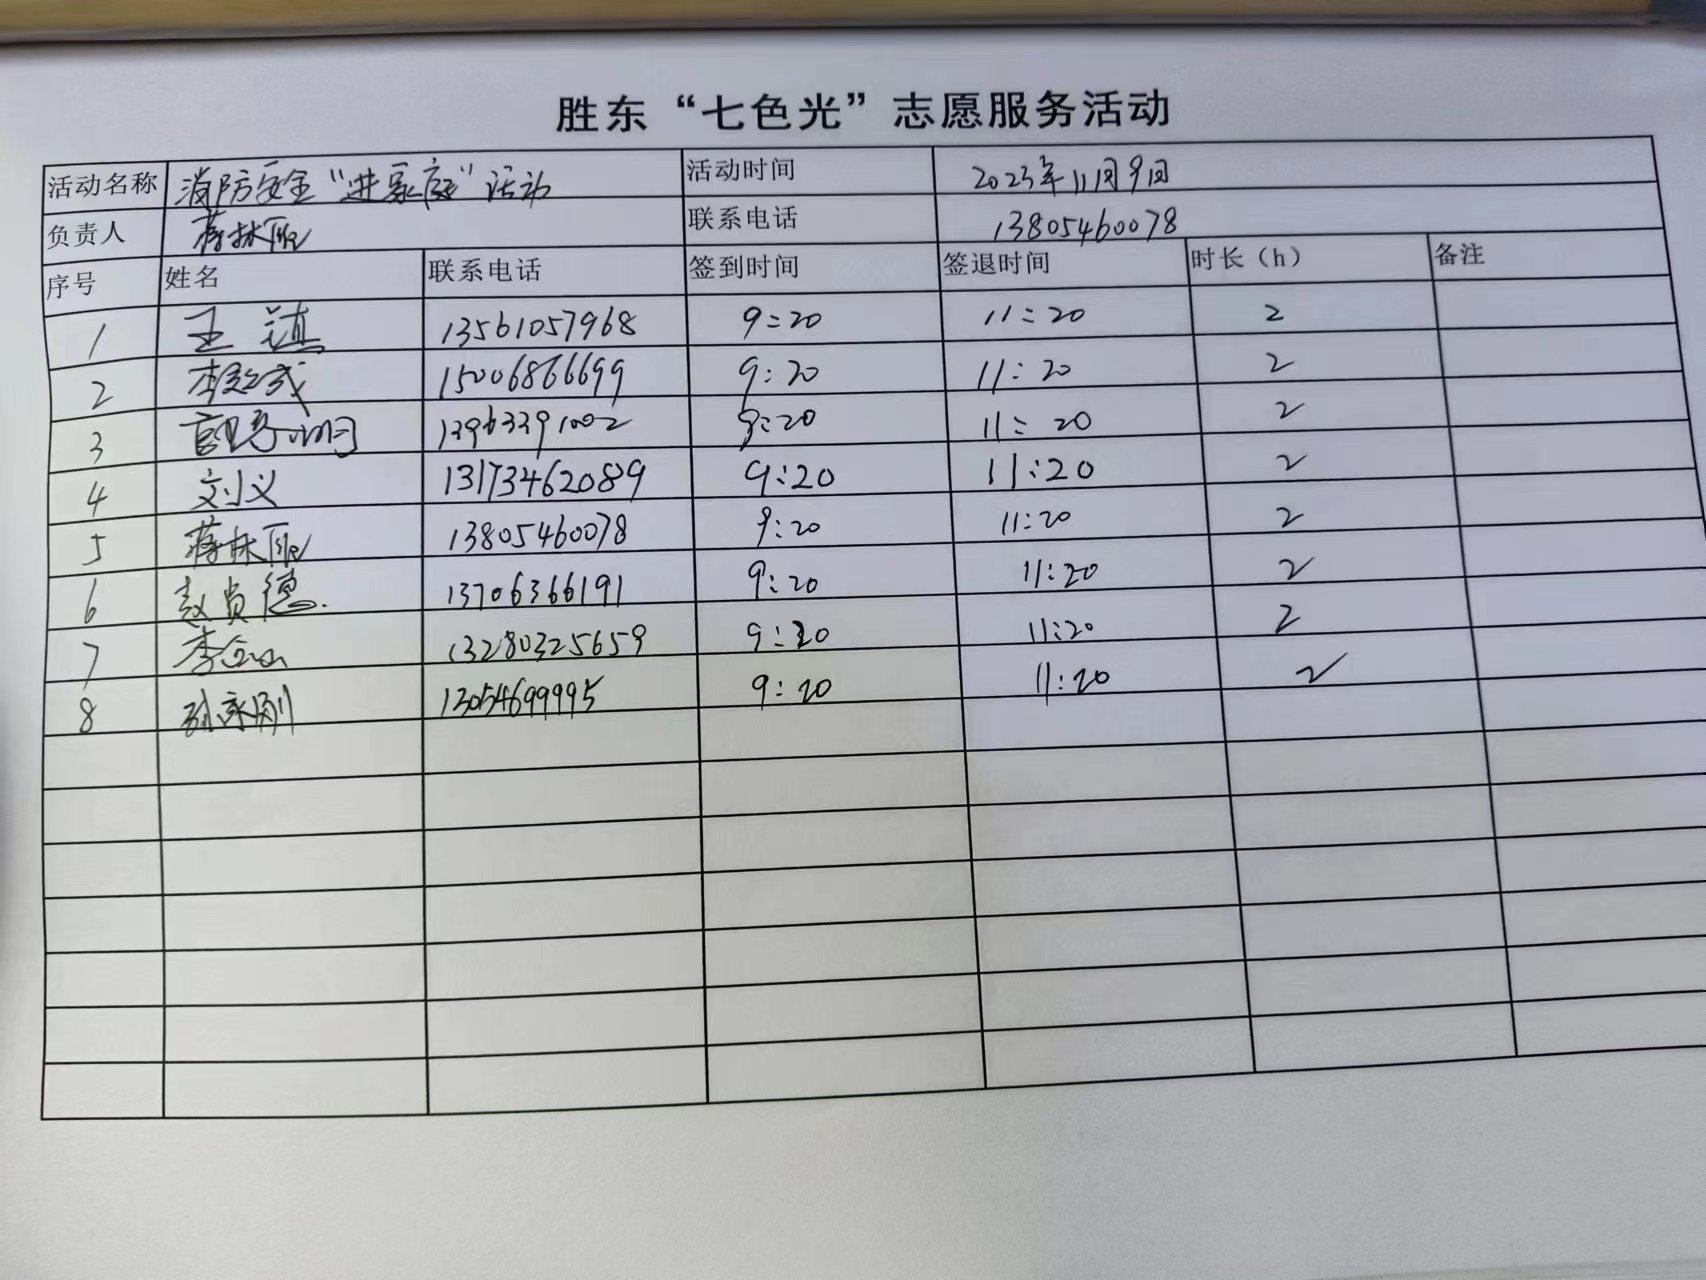 胜东“七色光”志愿服务活动
活动名称 消防安全“进家庭”活动 活动时间 2023年11月9日
负责人 蒋林 联系电话 13805460078
序号 姓名 联系电话 签到时间 签退时间 时长（h） 备注
1 王镇 13561057968 9:20 11:20 2
2 李 15006866699 9:20 11:20 2
3 13963391002 9:20 11:20 2
4 刘义 13173462089 9:20 11:20 2
5 蒋林 13805460078 9:20 11:20 2
6 赵贞德 13706366191 9:20 11:20 2
7 李金山 13280325659 9:20 11:20 2
8 孙永刚 13054699995 9:20 11:20 2